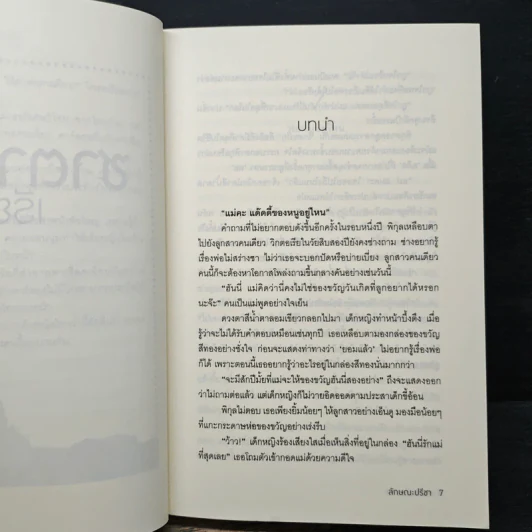 ชาตา
เรีย
บทนำ
"แม่คะ แด๊ดดี้ของหนูอยู่ไหน"
คำถามที่ไม่อยากตอบดังขึ้นอีกครั้งในรอบหนึ่งปี พิกุลเหลือบตา
ไปยังลูกสาวคนเดียว วิกตอเรียในวัยสิบสองปียังคงช่างถาม ช่างอยากรู้
เรื่องพ่อไม่สร่างซา ไม่ว่าเธอจะบอกปัดหรือบ่ายเบี่ยง ลูกสาวคนเดียว
คนนี้ก็จะต้องหาโอกาสโพล่งถามขึ้นกลางคันอย่างเช่นวันนี้
"ฮันนี่ แม่คิดว่านี่คงไม่ใช่ของขวัญวันเกิดที่ลูกอยากได้หรอก
นะจ๊ะ" คนเป็นแม่พูดอย่างใจเย็น
ดวงตาสีน้ำตาลอมเขียวกลอกไปมา เด็กหญิงทำหน้าบึ้งตึง เมื่อ
รู้ว่าจะไม่ได้รับคำตอบเหมือนเช่นทุกปี เธอเหลือบตามองกล่องของขวัญ
สีทองอย่างชั่งใจ ก่อนจะแสดงท่าทางว่า 'ยอมแล้ว' ไม่อยากรู้เรื่องพ่อ
ก็ได้ เพราะตอนนี้เธออยากรู้ว่าอะไรอยู่ในกล่องสีทองนั่นมากกว่า
"จะมีสักปีมั้ยที่แม่จะให้ของขวัญฮันนี่สองอย่าง" ถึงจะแสดงออก
ว่าไม่ถามต่อแล้ว แต่เด็กหญิงก็ไม่วายอิดออดตามประสาเด็กขี้อ้อน
พิกุลไม่ตอบ เธอเพียงยิ้มน้อยๆ ให้ลูกสาวอย่างเอ็นดู มองมือน้อยๆ
ที่แกะกระดาษห่อของขวัญอย่างเร่งรีบ
"ว้าว!" เด็กหญิงร้องเสียงใสเมื่อเห็นสิ่งที่อยู่ในกล่อง "ฮันนี่รักแม่
ที่สุดเลย" เธอโถมตัวเข้ากอดแม่ด้วยความดีใจ
ลักษณะปรีชา 7